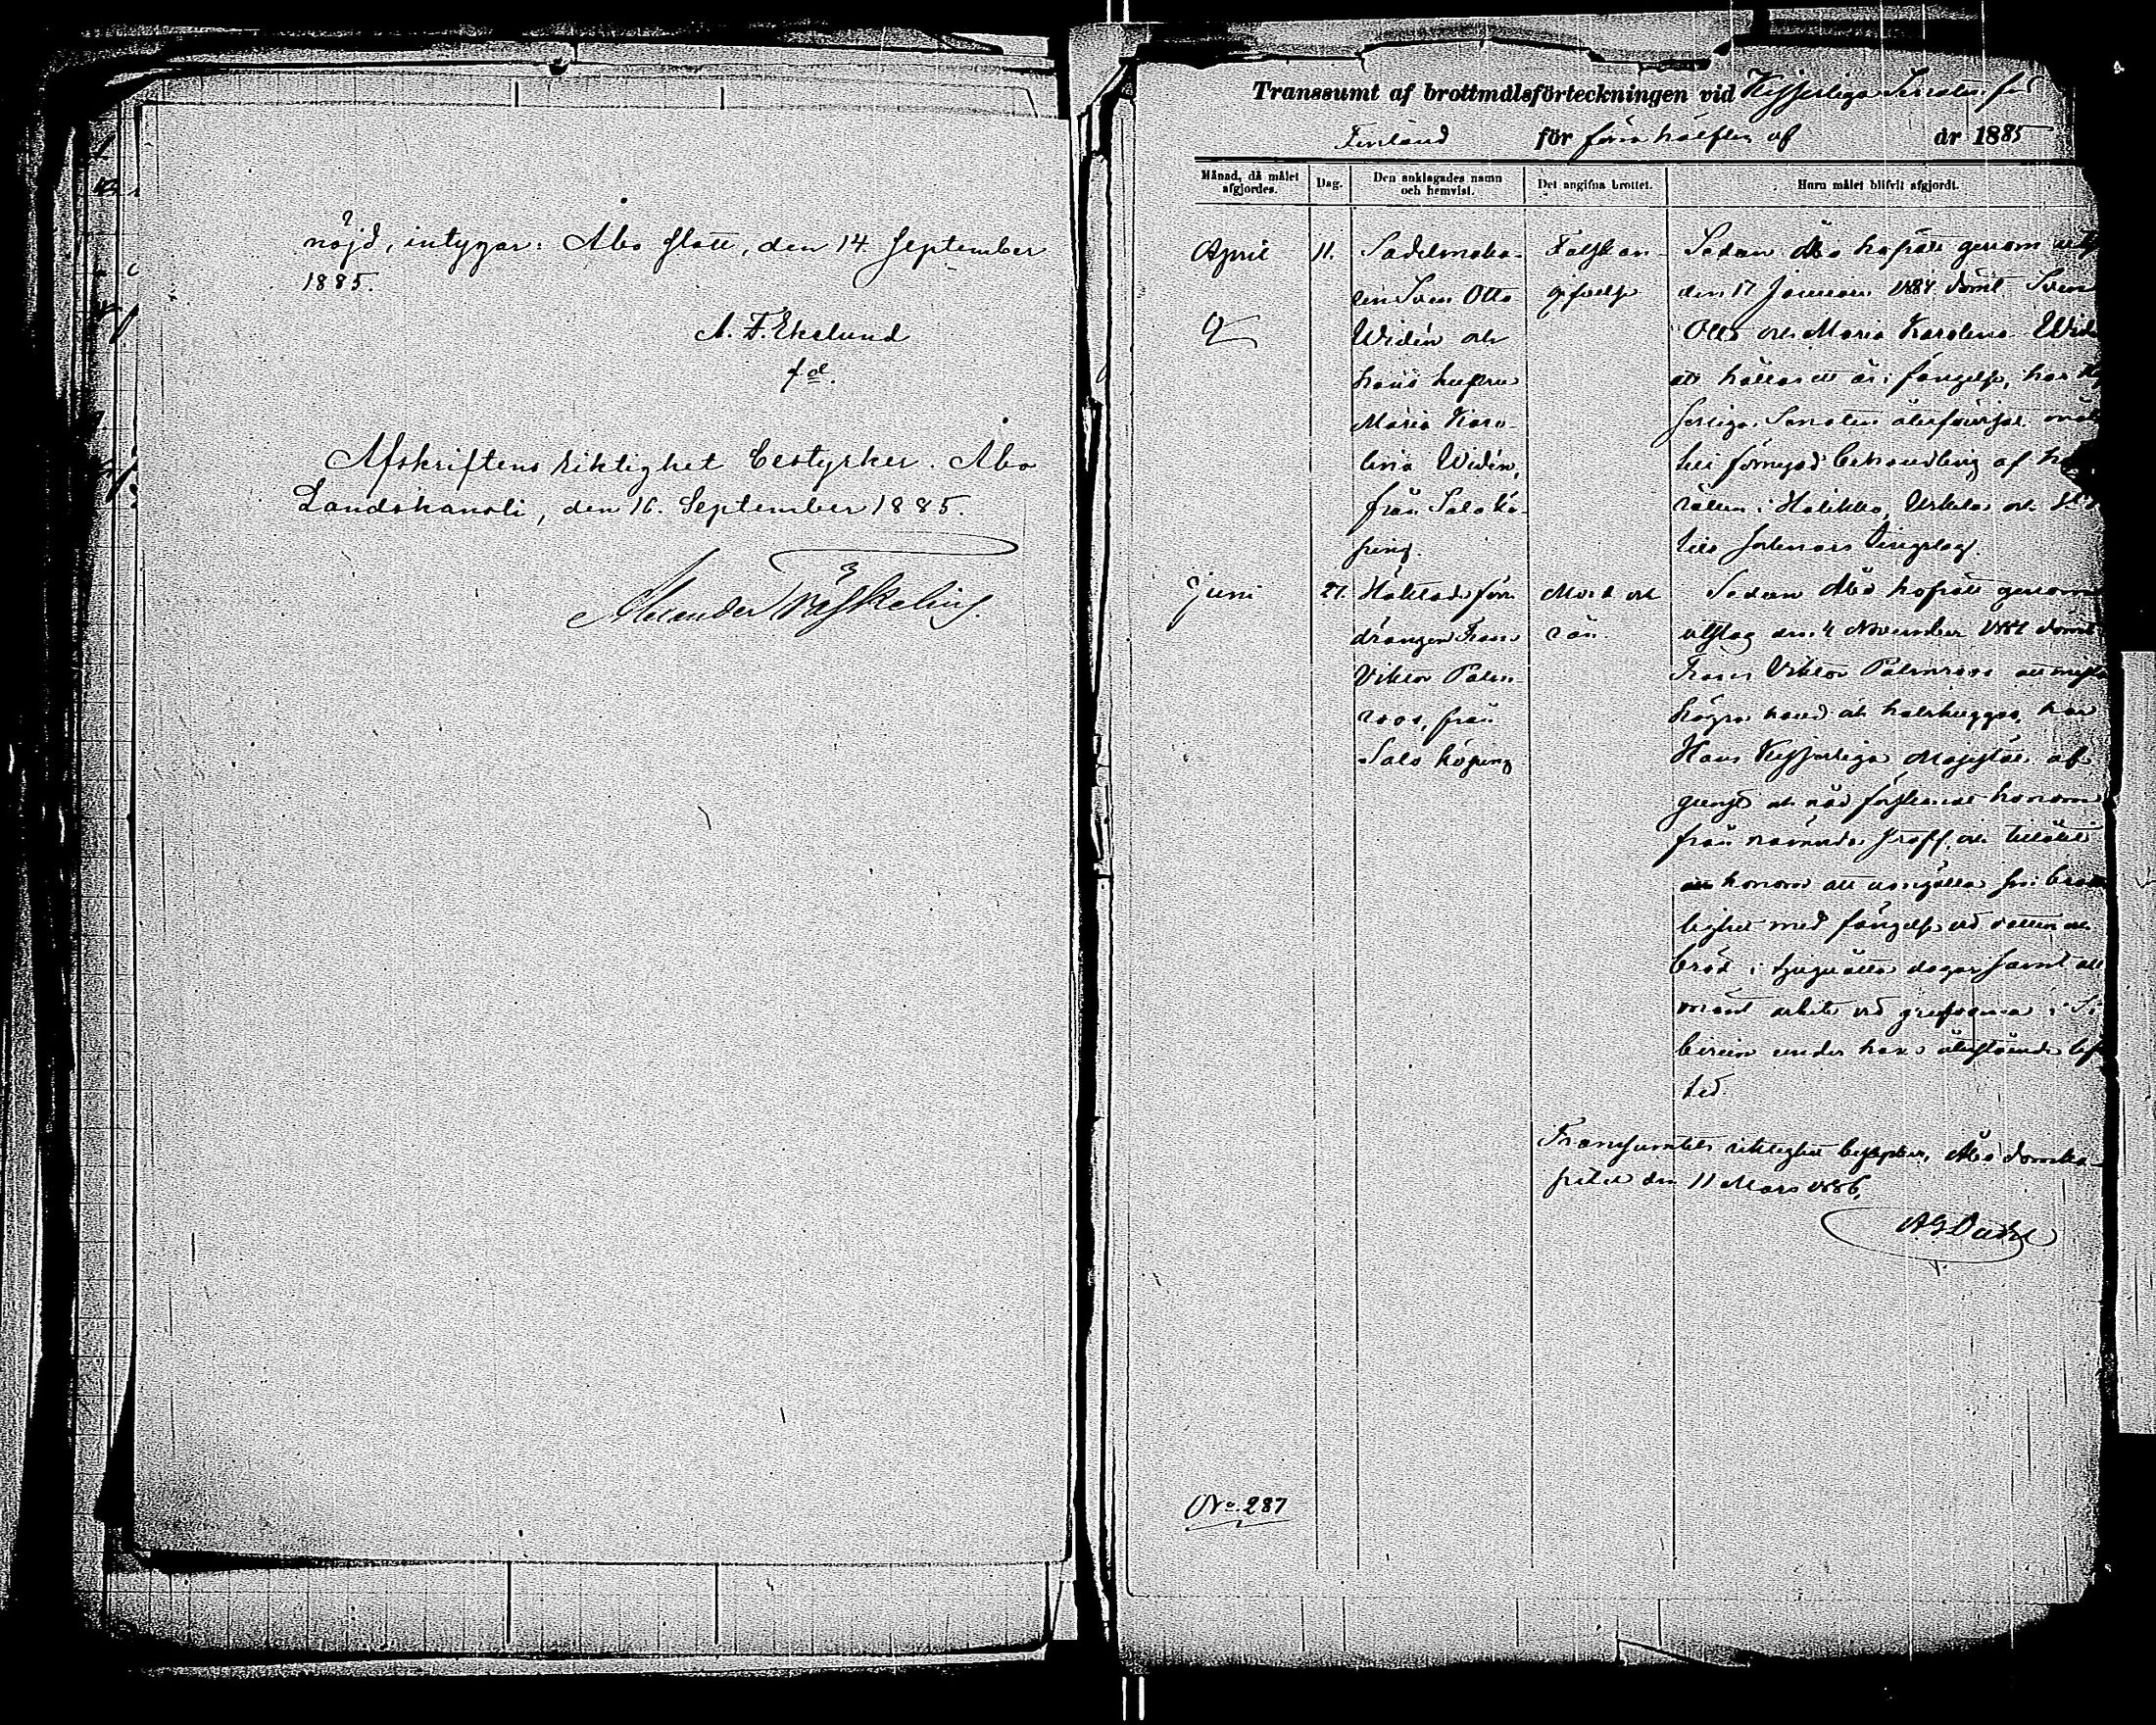 nöjd, intygar: Åbo slott, den 14 September
1885.
A. F. Ekelund
f.d.
Afskriftens riktighet bestyrker. Åbo
Landskansli, den 16. September 1885.
Alexander Träskelin
Transsumt af brottmålsförteckningen vid Kejserliga Senaten för
Finland för förra hälften af år 1885
Månad, då målet afgjordes.
Dag.
Den anklagades namn och hemvist.
Det angifna brottet.
Huru målet blifvit afgjordt.
April
11.
Sadelmaka-
ren Sven Otto
Widén och
hans hustru
Maria Karo-
lina Widén,
från Salo kö-
ping.
Falsk an-
gifvelse
Sedan Åbo hofrätt genom utsl
den 17 Januari 1884 dömt Sven
Otto och Maria Karolina Widé
att hållas ett år i fängelse, har Kej
serliga Senaten återförvisat målet
till förnyad behandling af hä
rätten i Halikko, Uskela och
till hörande tingslag.
Juni
27.
Häktade förre
drängen Frans
Viktor Palm-
roos, från
Salo köping
Mord och
rån.
Sedan Åbo hofrätt genom
utslag den 4 November 1884 dömt
Frans Viktor Palmroos att mista
högra hand och halshuggas, har
Hans Kejserliga Majestät af
gunst och nåd förskonat honom
från nämnda straff och tillåtit
honom att umgälla sin brott
lighet med fängelse vid vatten och
bröd i tjuguåtta dagar samt all
mänt arbete vid grufvorna i Si
birien under hans återstående lifs
tid.
Transumtets riktighet bestyrker, Åbo domka-
pitel den 11 Mars 1886,
No. 287